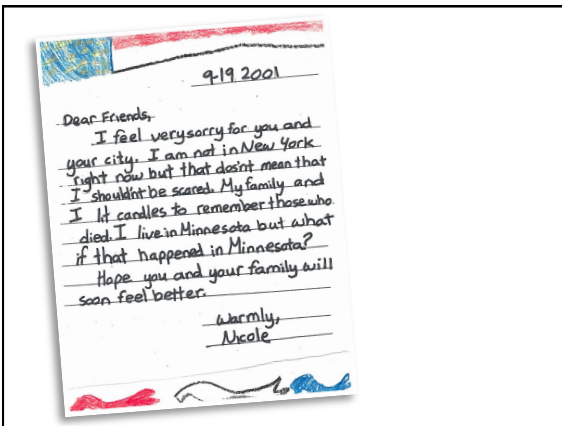 9-19 2001
Dear Friends,
I feel very sorry for you and
your city. I am not in New York
right now but that dosn't mean that
I shouldn't be scared. My family and
I lit candles to remember those who
died. I live in Minnesota but what
if that happened in Minnesota?
Hope you and your family will
soon feel better.
Warmly,
Nicole